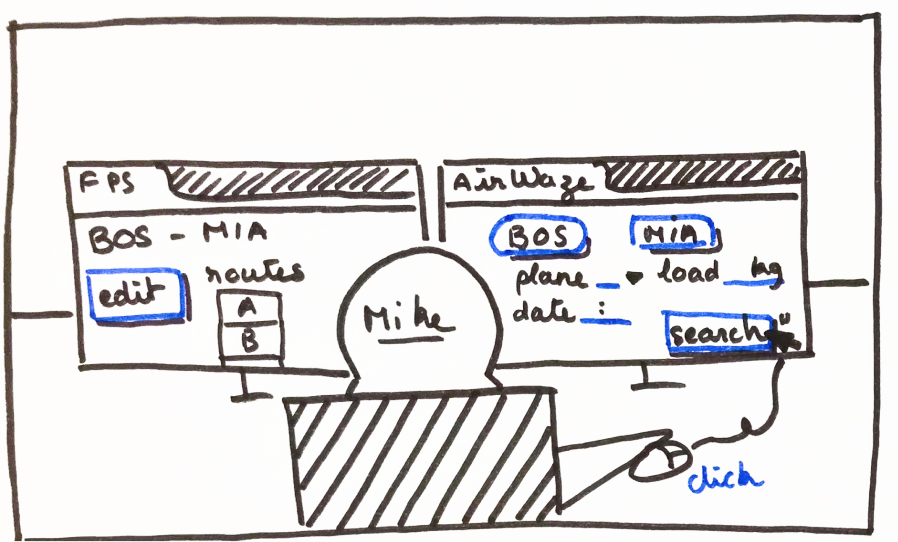 FPS
BOS - MIA
edit
routes
A
B
Mike
AirWaze
BOS MIA
plane _ load _ kg
date _:_
search
click